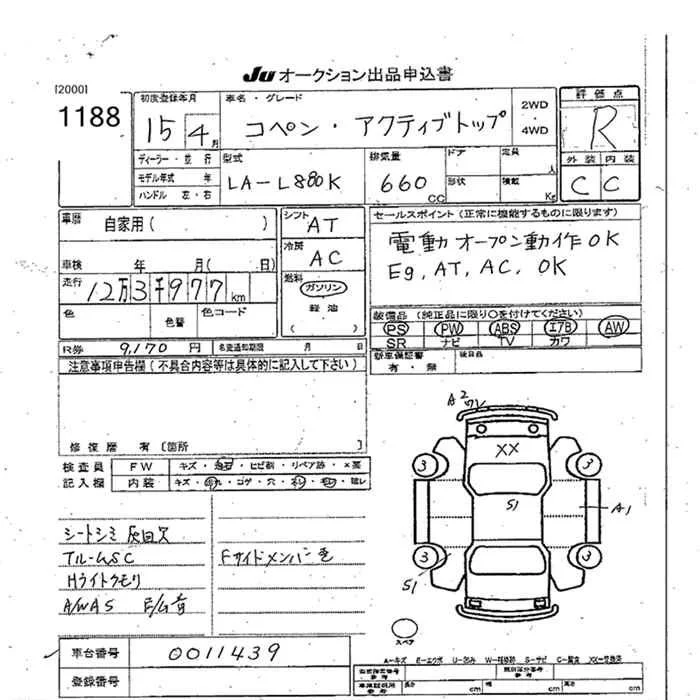 JU オークション出品申込書
[2000]
1188
初度登録年月 15 4月
車名・グレード コペン・アクティブトップ
2WD・4WD
評価点 R
外装 内装
C C
ディーラー・並行
モデル年式 年
ハンドル 左・右
型式 LA-L880K
排気量 660 CC
ドア 定員 人
形状 積載 Kg
車歴 自家用( )
シフト AT
セールスポイント(正常に機能するものに限ります)
電動オープン動作OK
Eg, AT, AC, OK
冷房 AC
車検 年 月( 日)
走行 12万3千977km
燃料 ガソリン
軽油
( )
色 色替 色コード
装備品(純正品に限り○を付けてください)
PS PW ABS エアB AW
SR ナビ TV カワ
R券 9,170円 名変通知期限 月 日
新車保証書 有・無 後日品
注意事項申告欄(不具合内容等は具体的に記入して下さい)
修復歴 有〔箇所 〕
検査員 FW キズ・飛石・ヒビ割・リペア跡・×要
記入欄 内装 キズ・汚れ・コゲ・穴・
シートシミ
Hライトクモリ
A/WAS E/G音
Fサイドメンバー
A2
XX
3
3
S1
A1
3
3
S1
スペア
A-キズ E-エクボ U-凹み S-サビ C-腐食
車台番号 0011439
登録番号
長さ cm 幅 cm 高さ cm